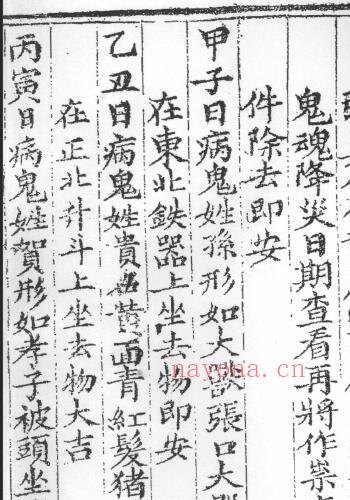 鬼魂降災日期查看再將作祟
件除去即安
甲子日病鬼姓孫形如大獸張口大
在東北鉄器上坐去物即安
乙丑日病鬼姓貴黃面青紅髮猪
在正北升斗上坐去物大吉
丙寅日病鬼姓賀形如孝子被頭坐
nayona.cn